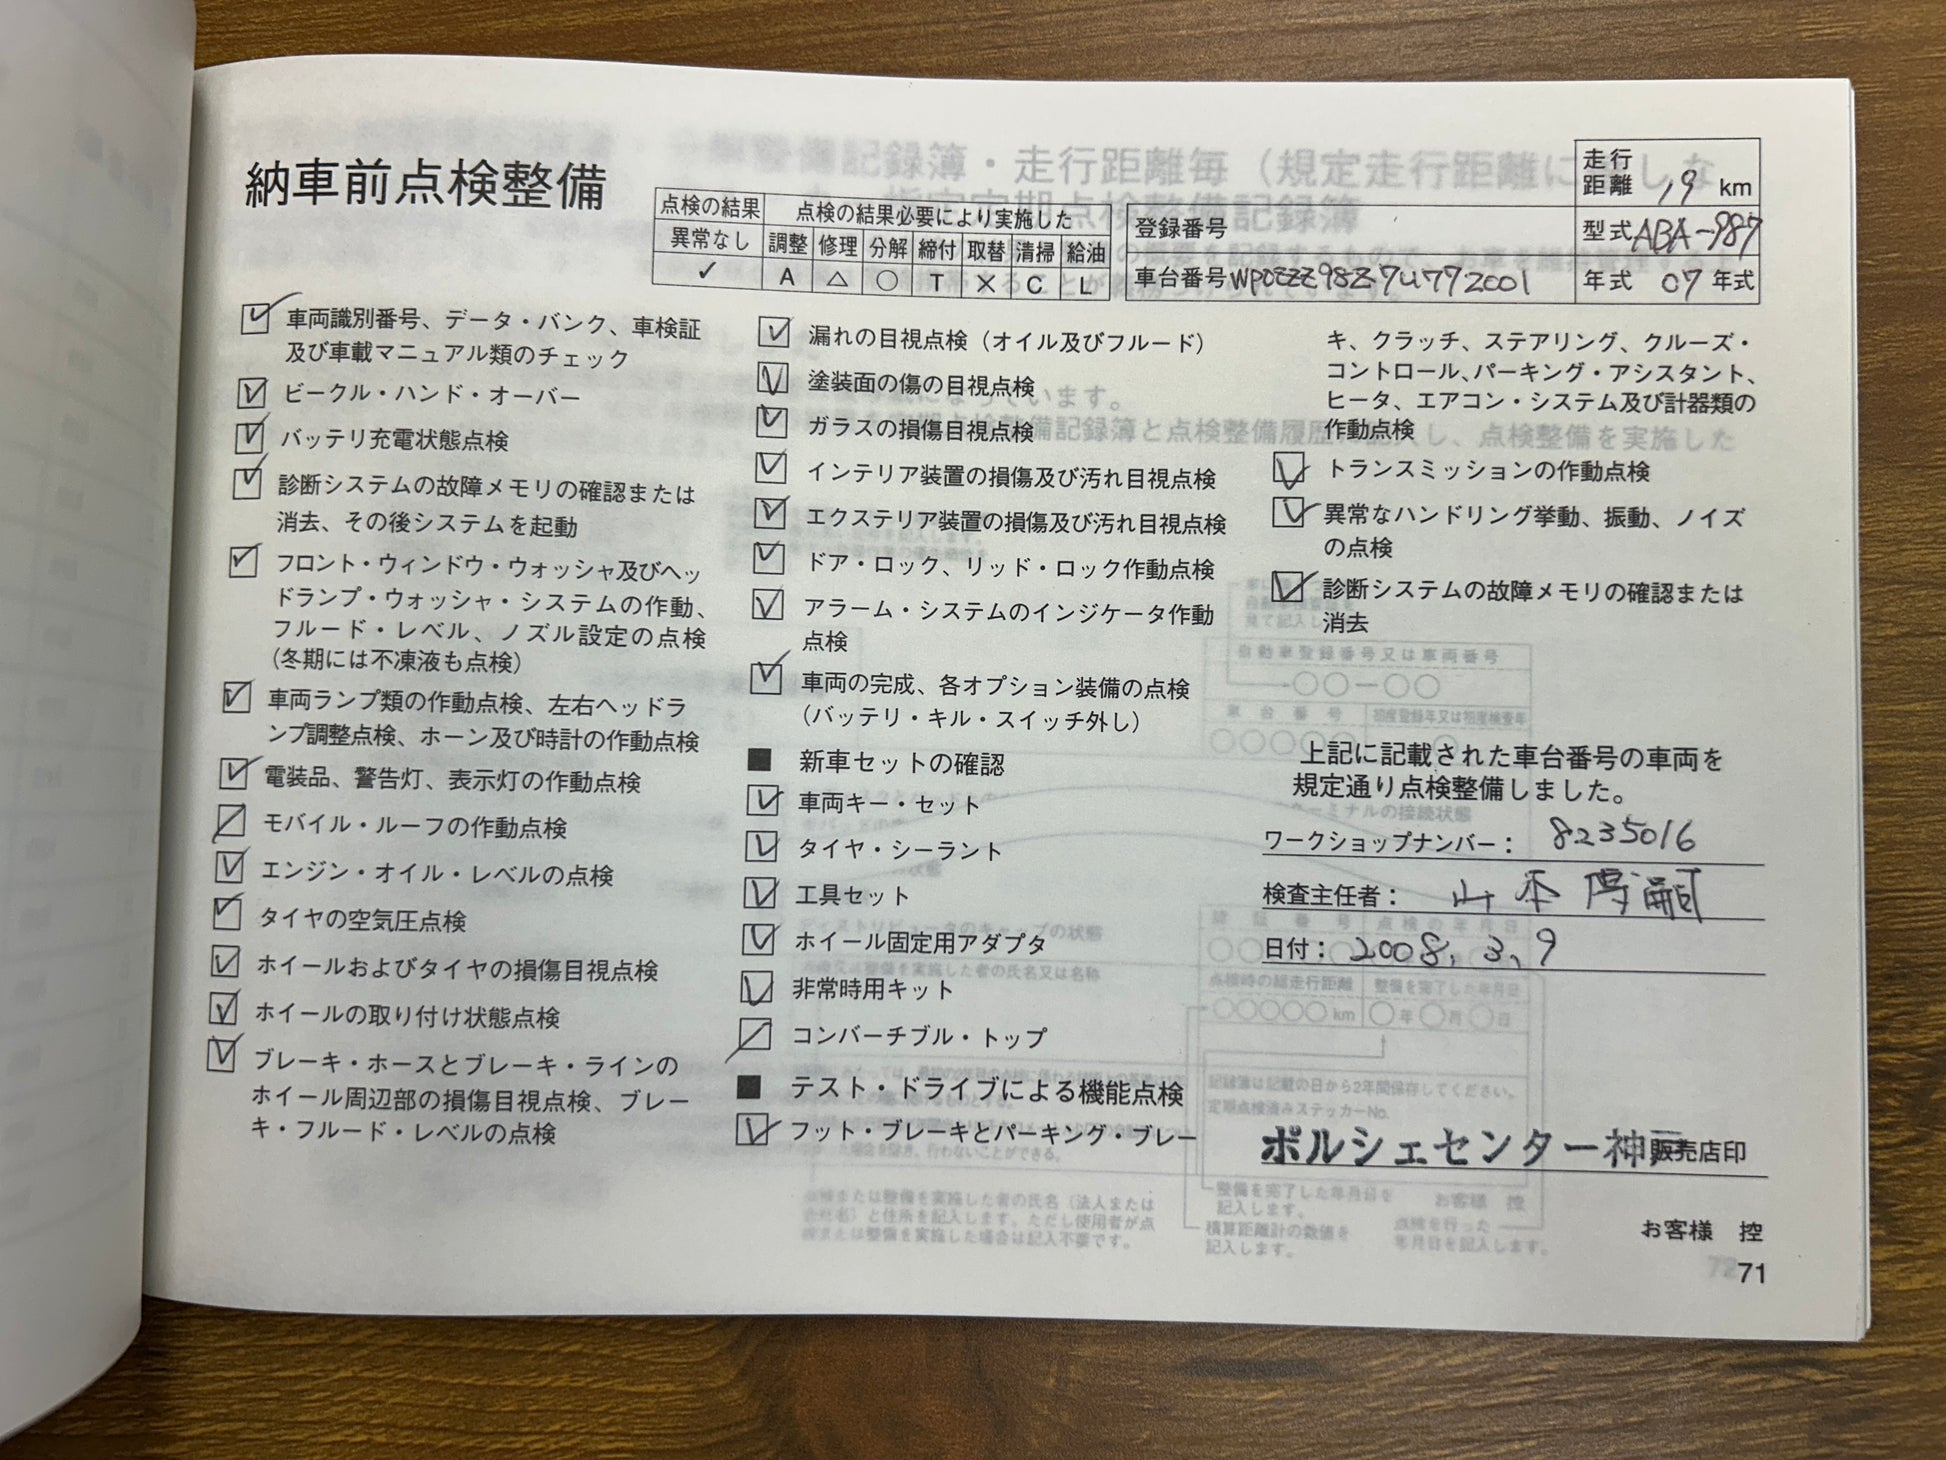 納車前点検整備
点検の結果 点検の結果必要により実施した
異常なし 調整 修理 分解 締付 取替 清掃 給油
✓ A △ ○ T × C L
走行距離 19 km
登録番号 型式 ABA-987
車台番号 WP0ZZZ98Z7U772001 年式 07 年式
車両識別番号、データ・バンク、車検証
及び車載マニュアル類のチェック
ビークル・ハンド・オーバー
バッテリ充電状態点検
診断システムの故障メモリの確認または
消去、その後システムを起動
フロント・ウィンドウ・ウォッシャ及びヘッ
ドランプ・ウォッシャ・システムの作動、
フルード・レベル、ノズル設定の点検
（冬期には不凍液も点検）
車両ランプ類の作動点検、左右ヘッドラ
ンプ調整点検、ホーン及び時計の作動点検
電装品、警告灯、表示灯の作動点検
モバイル・ルーフの作動点検
エンジン・オイル・レベルの点検
タイヤの空気圧点検
ホイールおよびタイヤの損傷目視点検
ホイールの取り付け状態点検
ブレーキ・ホースとブレーキ・ラインの
ホイール周辺部の損傷目視点検、ブレー
キ・フルード・レベルの点検
漏れの目視点検（オイル及びフルード）
塗装面の傷の目視点検
ガラスの損傷目視点検
インテリア装置の損傷及び汚れ目視点検
エクステリア装置の損傷及び汚れ目視点検
ドア・ロック、リッド・ロック作動点検
アラーム・システムのインジケータ作動
点検
車両の完成、各オプション装備の点検
（バッテリ・キル・スイッチ外し）
■ 新車セットの確認
車両キー・セット
タイヤ・シーラント
工具セット
ホイール固定用アダプタ
非常時用キット
コンバーチブル・トップ
■ テスト・ドライブによる機能点検
フット・ブレーキとパーキング・ブレー
キ、クラッチ、ステアリング、クルーズ・
コントロール、パーキング・アシスタント、
ヒータ、エアコン・システム及び計器類の
作動点検
トランスミッションの作動点検
異常なハンドリング挙動、振動、ノイズ
の点検
診断システムの故障メモリの確認または
消去
上記に記載された車台番号の車両を
規定通り点検整備しました。
ワークショップナンバー： 8235016
検査主任者： 山本
日付： 2008.3.9
ポルシェセンター神戸 販売店印
お客様 控
71